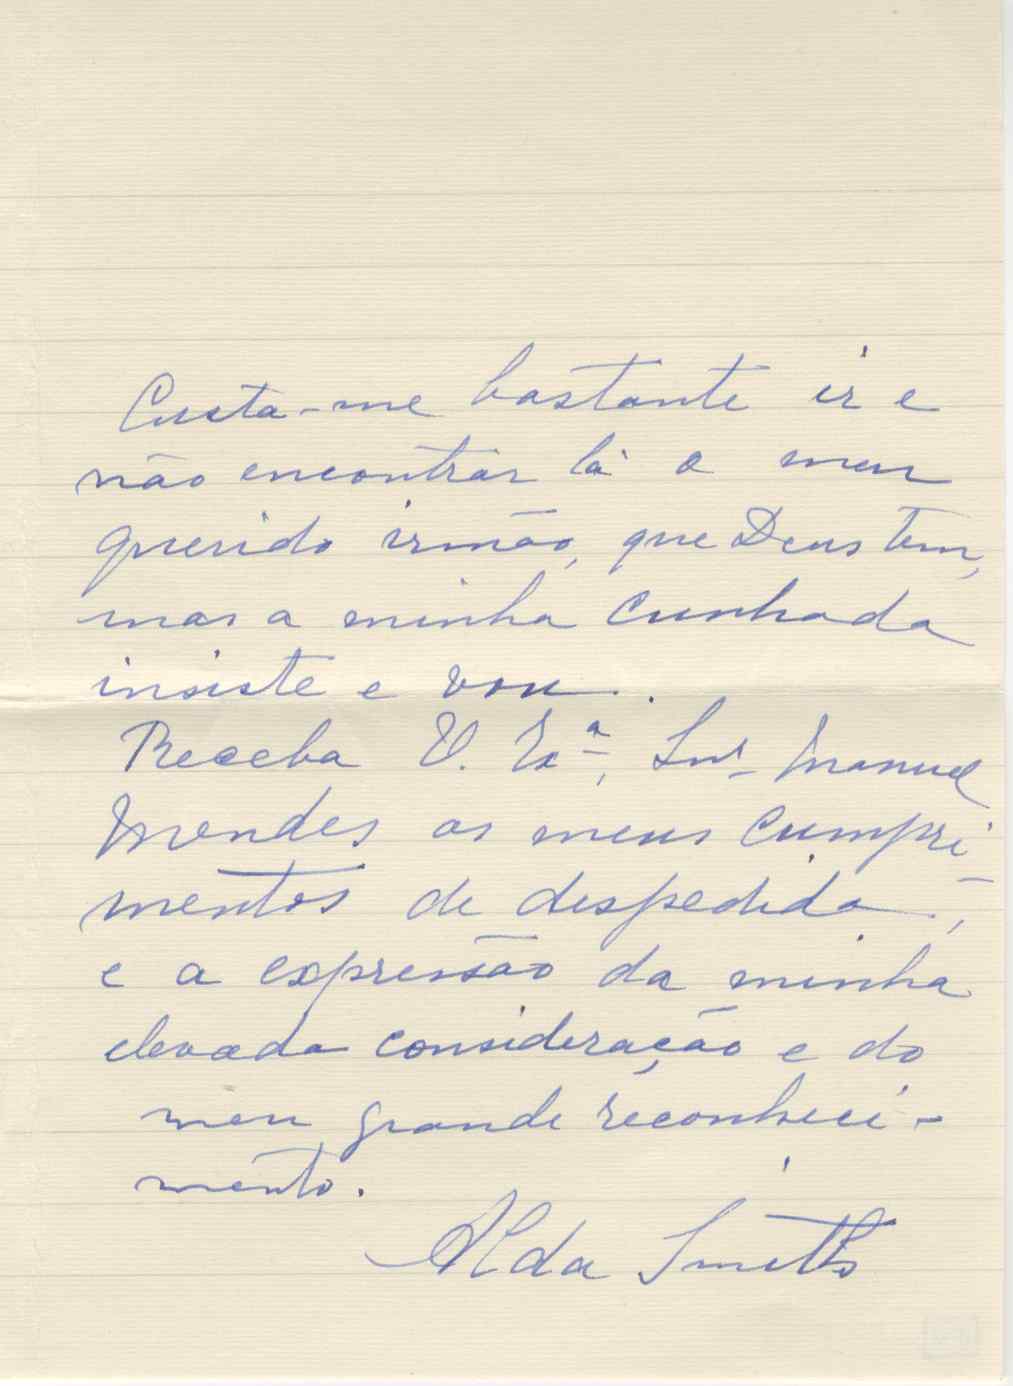 Custa-me bastante ir e
não encontrar lá o meu
querido irmão, que Deus tem,
mas a minha cunhada
insiste e vou..
Receba V. Exª, Snr. Manuel
Mendes os meus cumpri-
mentos de despedida,
e a expressão da minha
elevada consideração e do
meu grande reconheci-
mento.
Alda